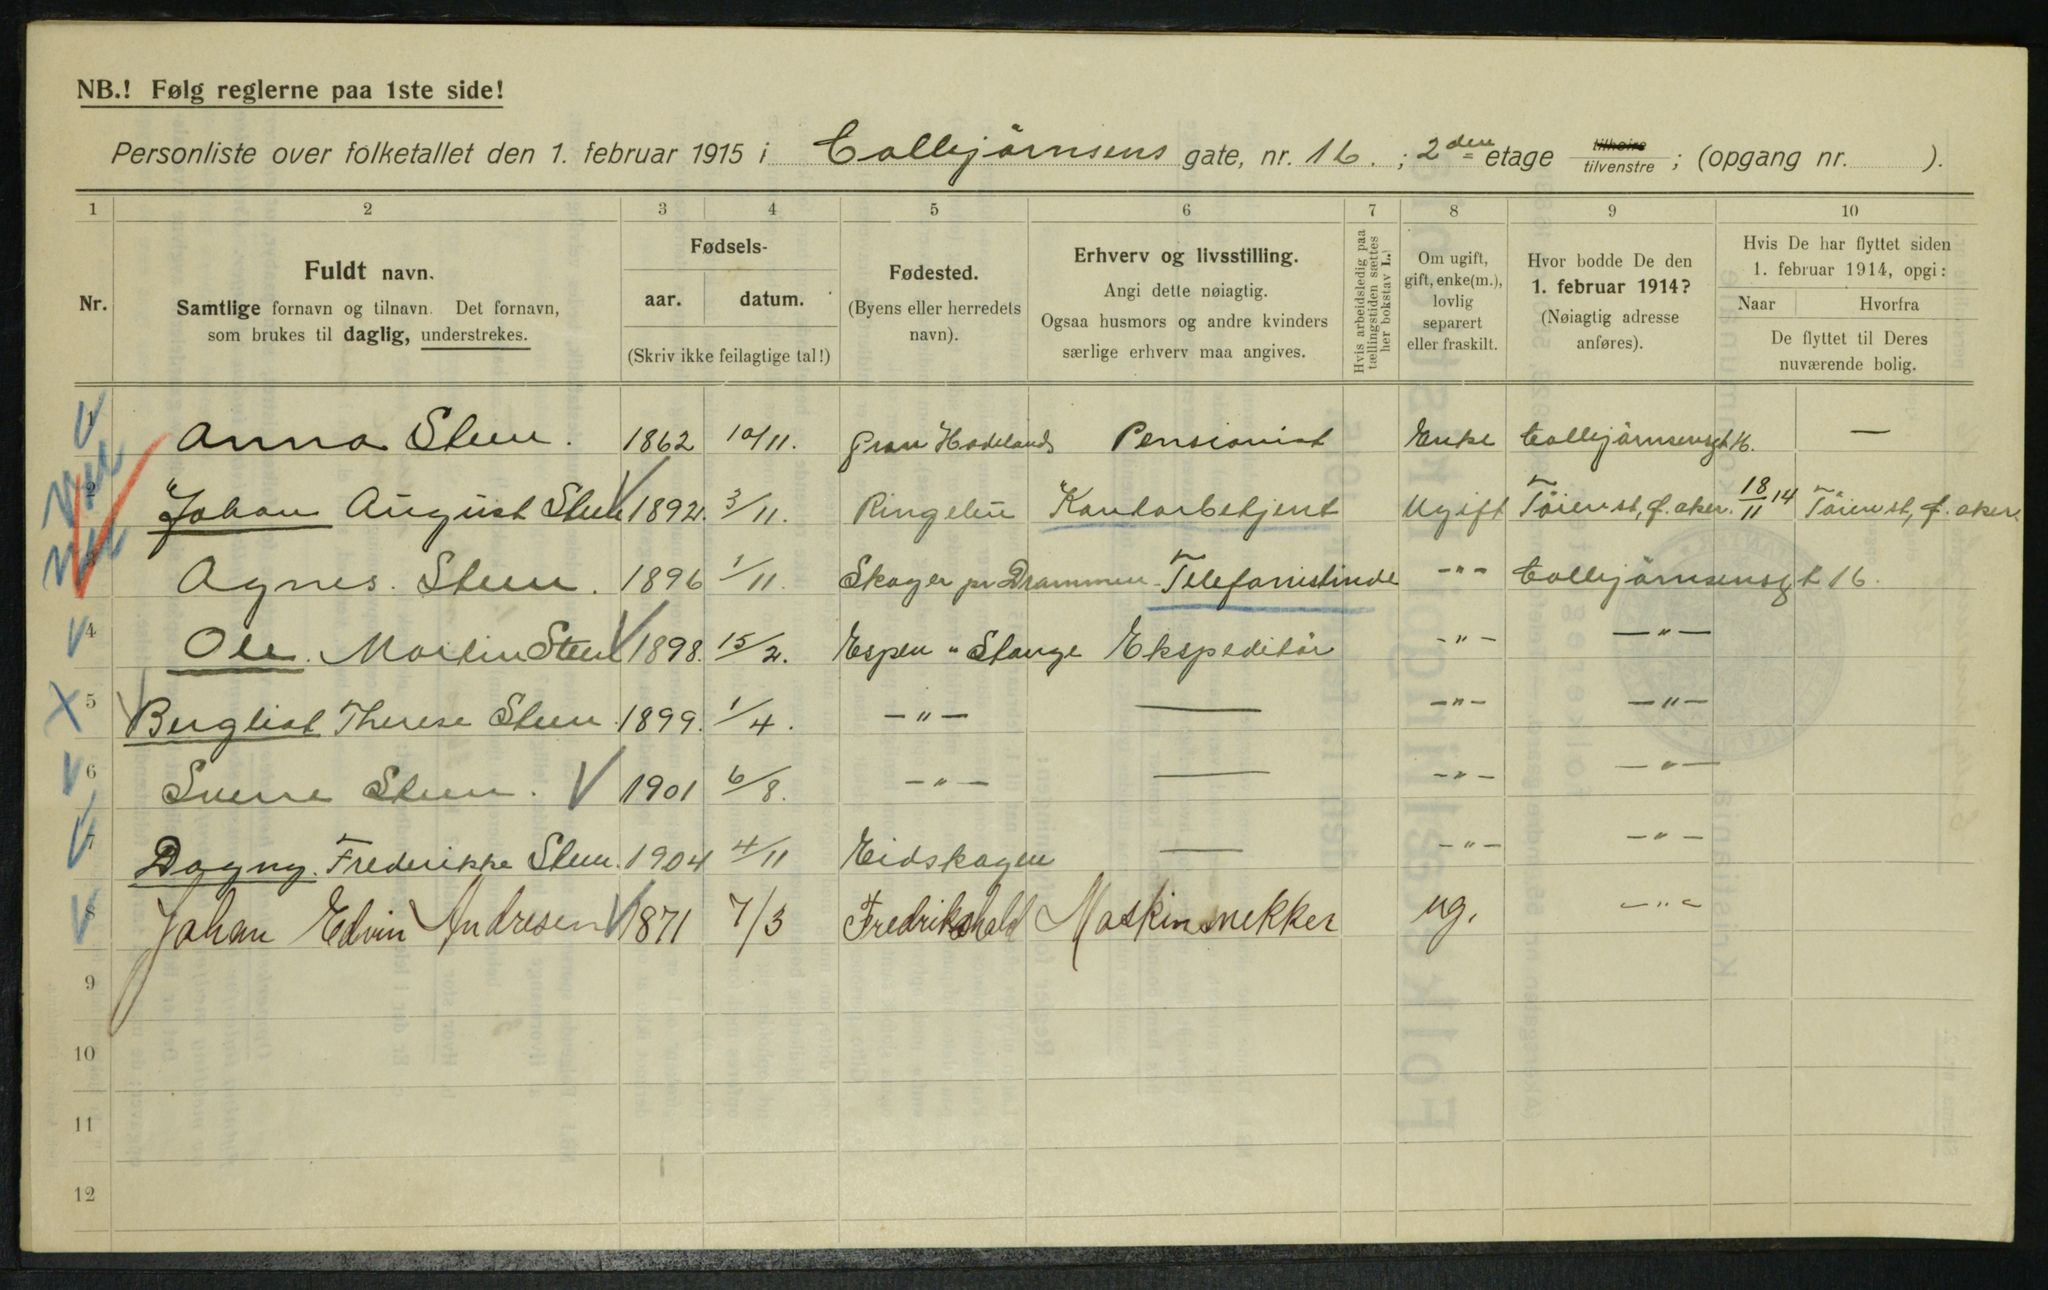 NB.! Følg reglerne paa 1ste side!
Personliste over folketallet den 1. februar 1915 i Colbjörnsens gate, nr. 16. ; 2den etage tilhøire tilvenstre ; (opgang nr. ).
1 2 3 4 5 6 7 8 9 10
Nr.
Fuldt navn.
Samtlige fornavn og tilnavn. Det fornavn,
som brukes til daglig, understrekes.
Fødsels-
aar. datum.
(Skriv ikke feilagtige tal!)
Fødested.
(Byens eller herredets
navn).
Erhverv og livsstilling.
Angi dette nøiagtig.
Ogsaa husmors og andre kvinders
særlige erhverv maa angives.
Hvis arbeidsledig paa
tællingstiden sættes
her bokstav L.
Om ugift,
gift, enke(m.),
lovlig
separert
eller fraskilt.
Hvor bodde De den
1. februar 1914?
(Nøiagtig adresse
anføres).
Hvis De har flyttet siden
1. februar 1914, opgi:
Naar Hvorfra
De flyttet til Deres
nuværende bolig.
1 Anna Steen. 1862 10/11. Gran Hadeland Pensionist Enke Colbjörnsensgt 16. —
2 Johan August Steen 1892. 3/11. Ringebu Kontorbetjent Ugift Töienst, Ø. aker. 18/11 14 Töienst, Ø. aker.
3 Agnes. Steen. 1896 1/11. Skoger pr Drammen Telefonistinde -"- Colbjörnsensgt 16.
4 Ole. Martin Steen 1898. 15/2. Espen " Stange Ekspeditör -"- —"—
5 Bergliot Therese Steen. 1899. 1/4. —"— — -"- —"—
6 Sverre Steen. 1901 6/8. —"— — -"- —"—
7 Dagny. Frederikke Steen. 1904 4/11 Eidskogen — -"- -"-
8 Johan Edvin Andresen 1871 7/3 Fredrikshald Maskinsnekker ug. -"-
9
10
11
12